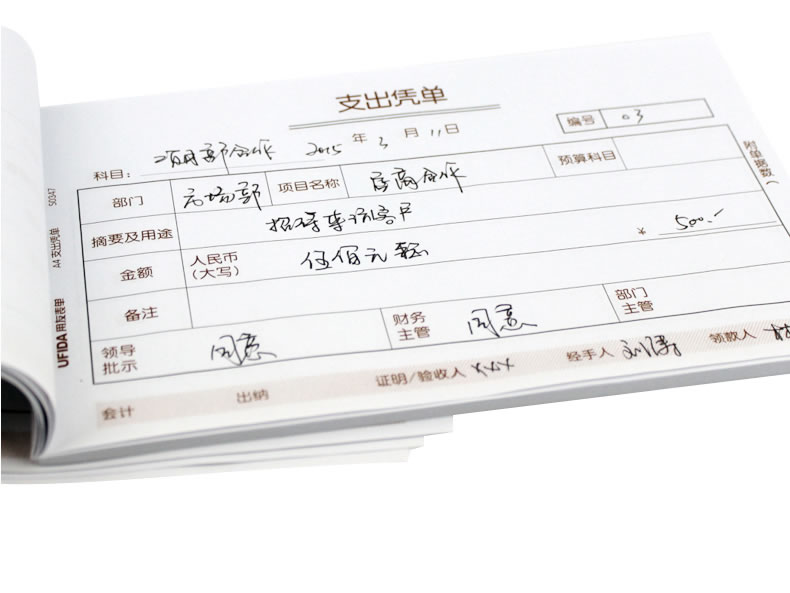 支出凭单
编号 03
科目: 项目部合作 2015 年 3 月 11 日
部门 市场部 项目名称 房商合作 预算科目
摘要及用途 招待来访客户
金额 人民币(大写) 伍佰元整 ¥ 500.-
备注
领导批示 同意 财务主管 同意 部门主管
会计 出纳 证明/验收人 xxx 经手人 刘 领款人
附单据数(
UFIDA 用友表单 A4 支出凭单 S0347